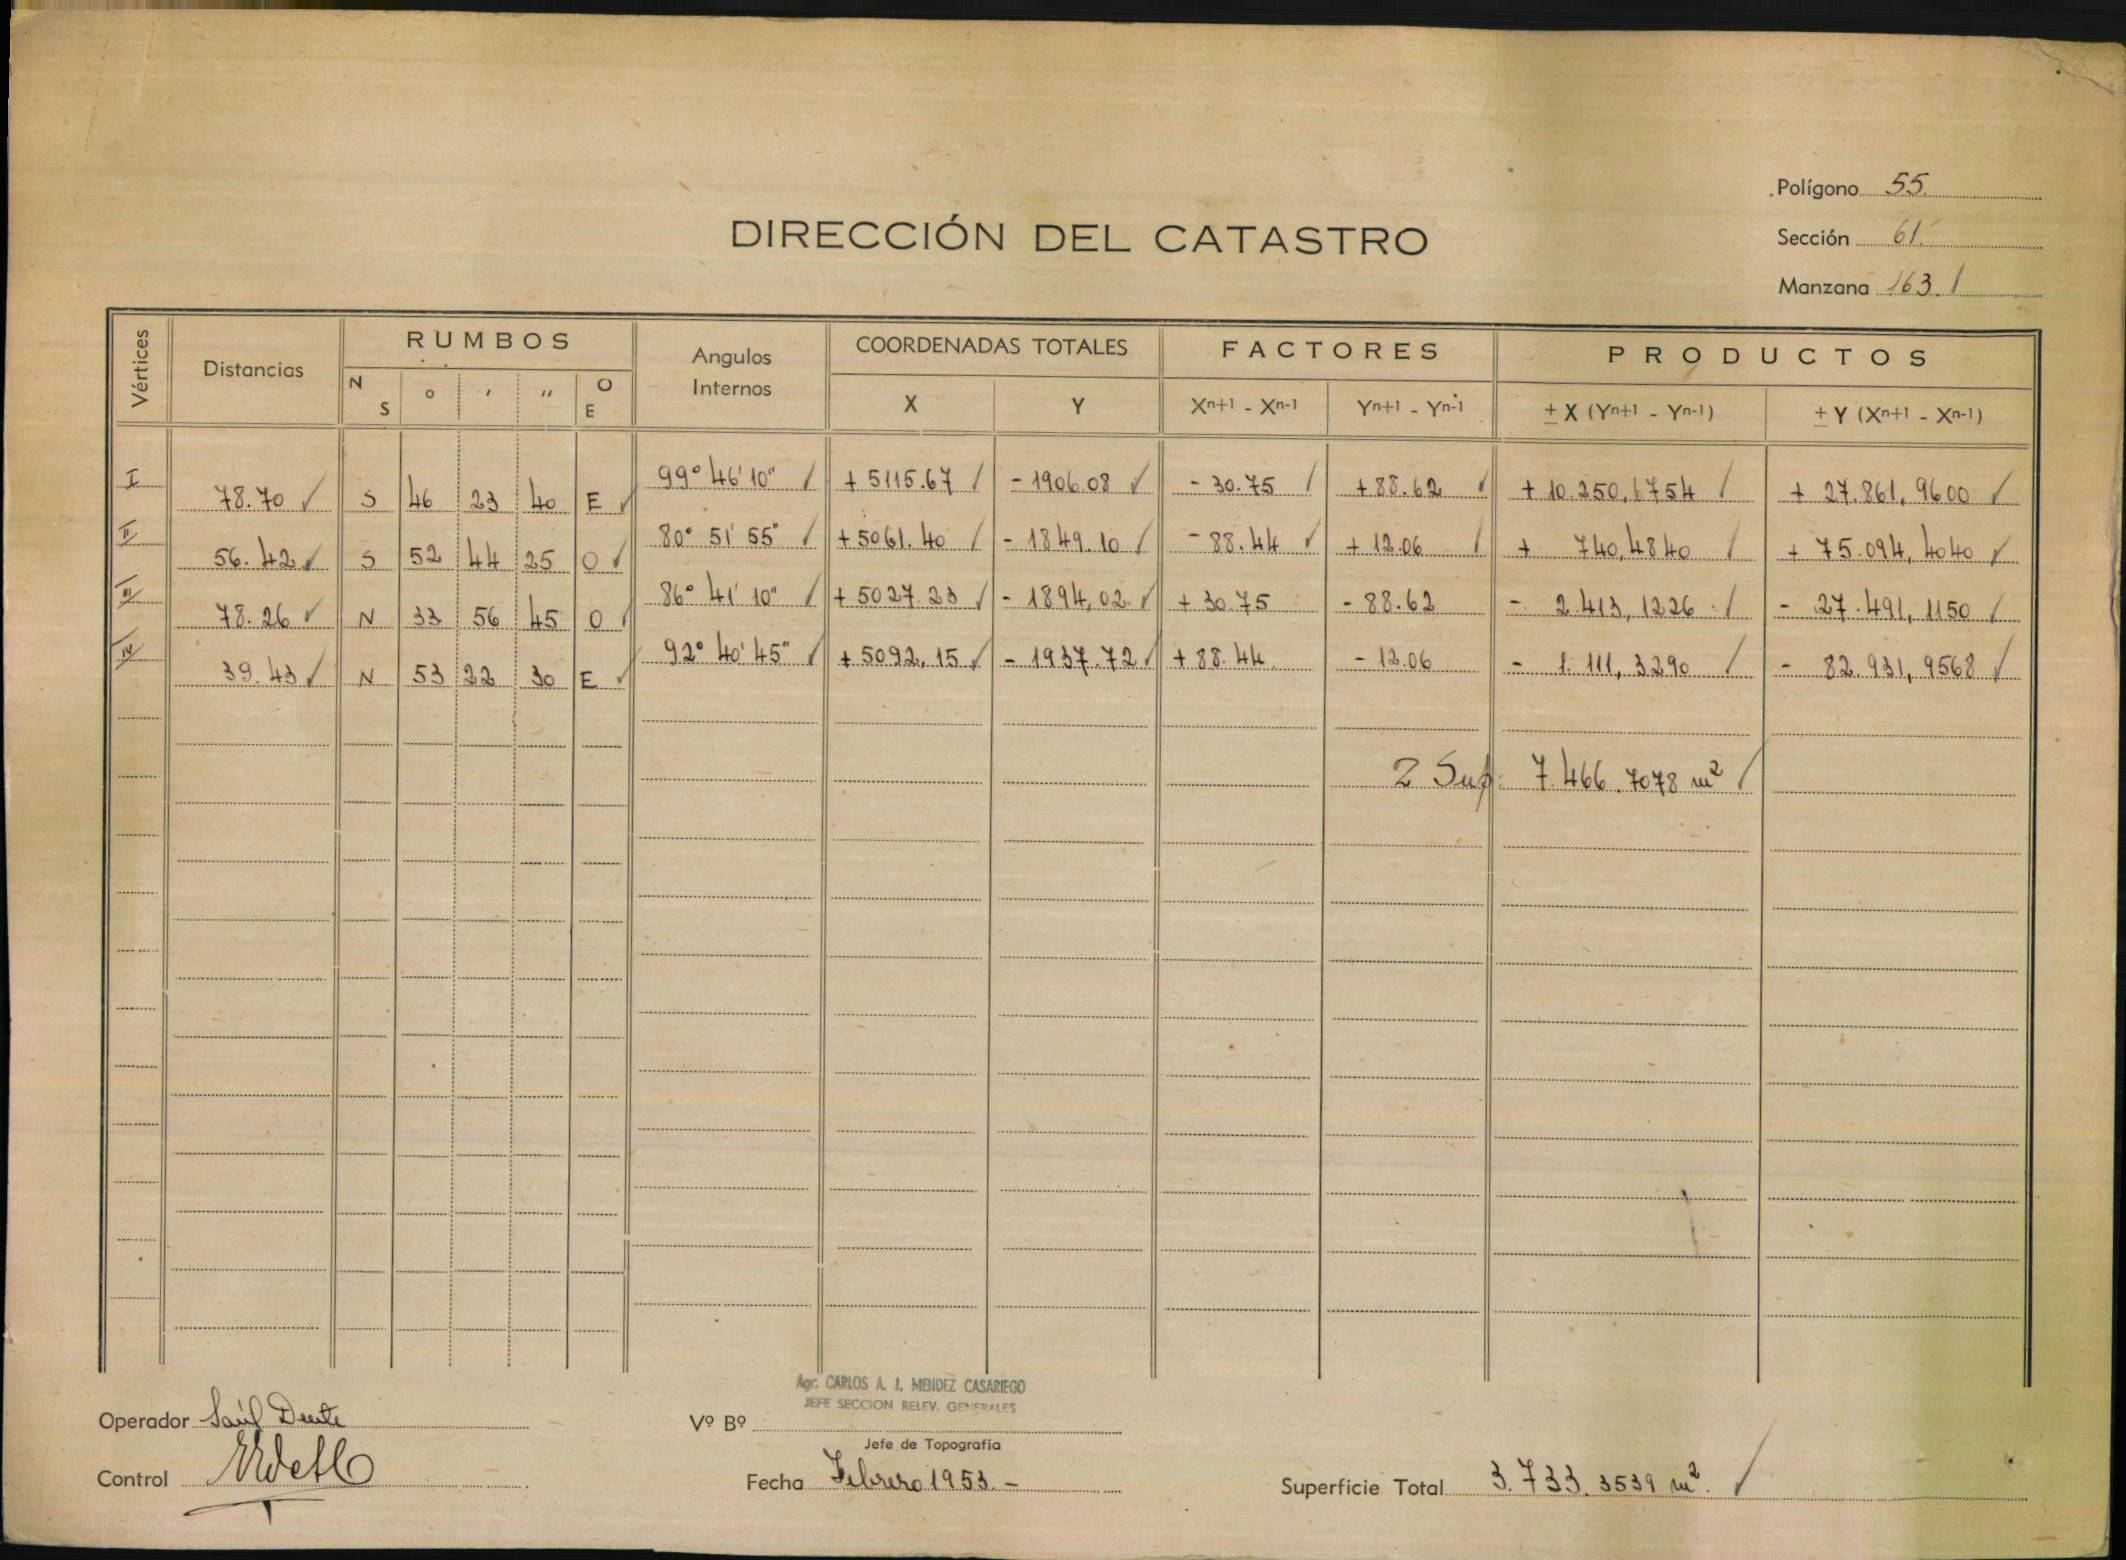 Polígono 55.
DIRECCIÓN DEL CATASTRO
Sección 61.
Manzana 163.
Vértices Distancias RUMBOS Angulos Internos COORDENADAS TOTALES FACTORES PRODUCTOS
N S ° ' " O E X Y Xn+1 - Xn-1 Yn+1 - Yn-1 ± X (Yn+1 - Yn-1) ± Y (Xn+1 - Xn-1)
I 78.70 S 46 23 40 E 99° 46' 10" + 5115.67 - 1906.08 - 30.75 + 88.62 + 10.250,6754 + 27.861,9600
II 56.42 S 52 44 25 O 80° 51' 55" + 5061.40 - 1849.10 - 88.44 + 12.06 + 740,4840 + 75.094,4040
III 78.26 N 33 56 45 O 86° 41' 10" + 5027.23 - 1894,02. + 30.75 - 88.62 - 2.413,1226 - 27.491,1150
IV 39.43 N 53 22 30 E 92° 40' 45" + 5092,15 - 1937.72 + 88.44 - 12.06 - 1.111,3290 - 82.931,9568
2 Sup: 7.466.7078 m²
Agr. CARLOS A. J. MENDEZ CASARIEGO
JEFE SECCION RELEV. GENERALES
Operador Saúl
Vº Bº
Jefe de Topografía
Control
Fecha Febrero 1953.-
Superficie Total 3.733.3539 m².